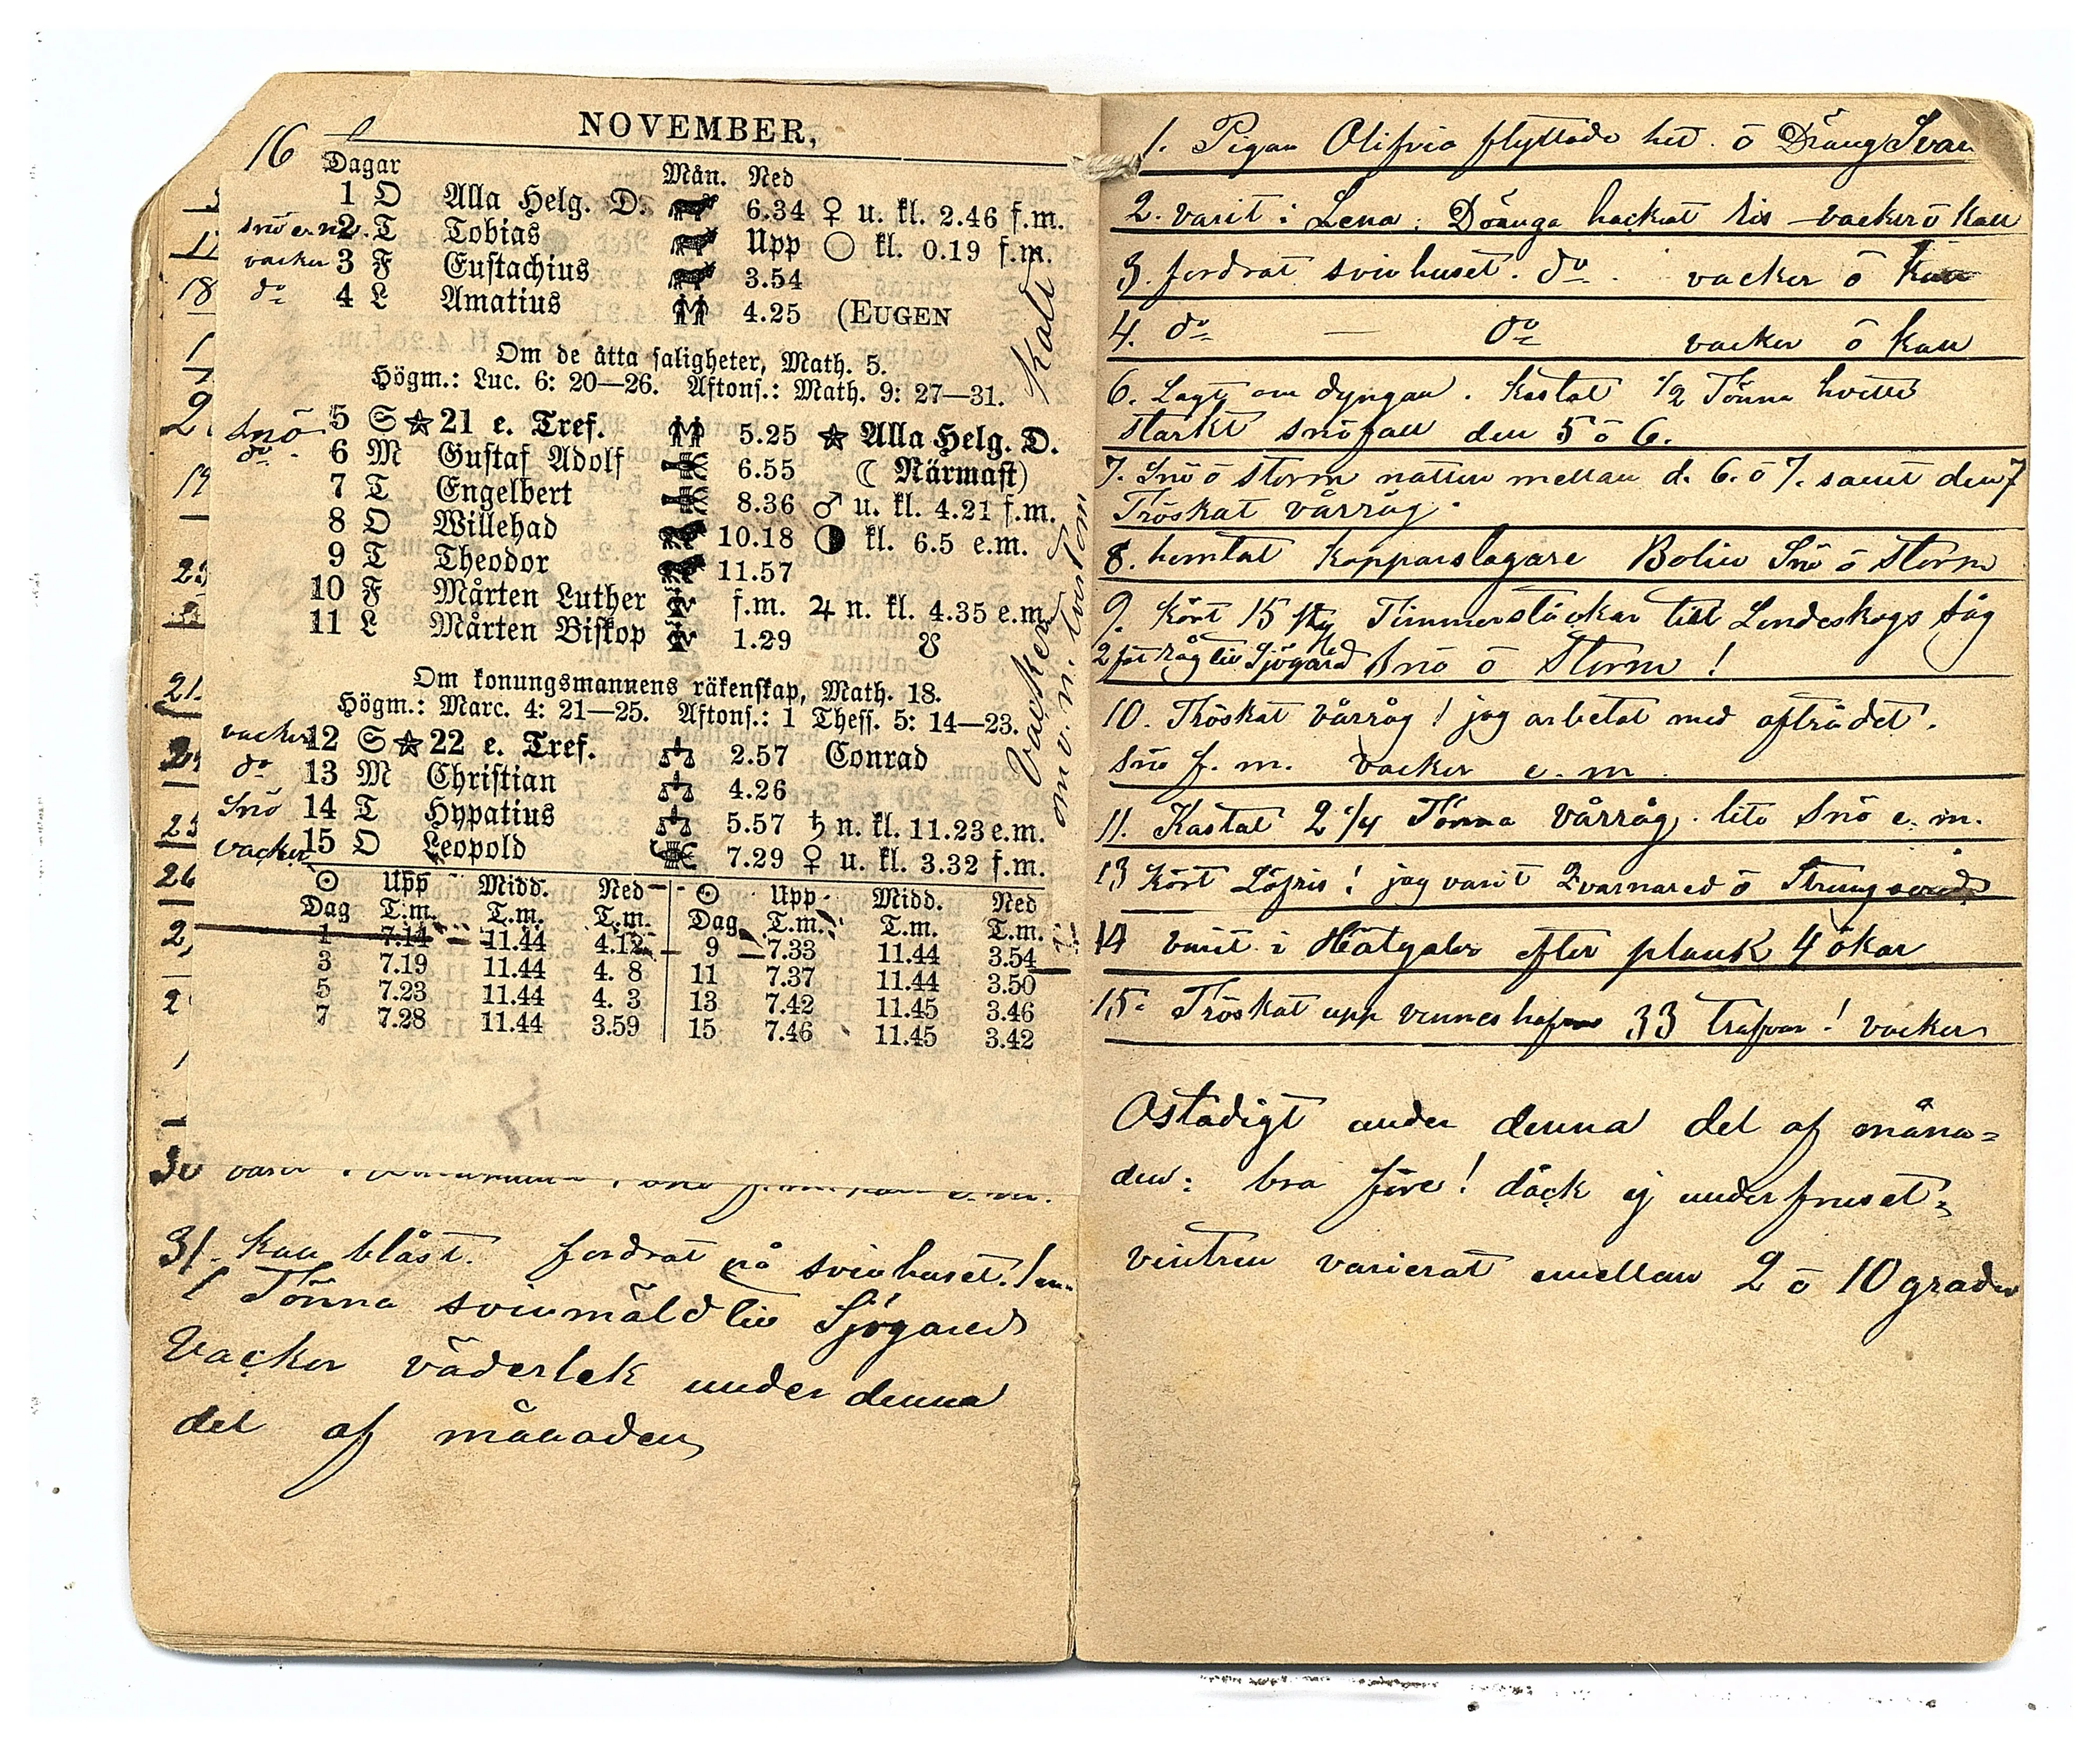 16
NOVEMBER,
Dagar Mån. Ned
1 O Alla Helg. D. 6.34 ♀ u. kl. 2.46 f.m.
snö e. m. 2 T Tobias Upp ○ kl. 0.19 f.m.
vacker 3 F Eustachius 3.54
do 4 L Amatius 4.25 (EUGEN
kallt
Om de åtta saligheter, Math. 5.
Högm.: Luc. 6: 20—26. Aftons.: Math. 9: 27—31.
snö 5 S ★ 21 e. Tref. 5.25 ★ Alla Helg. D.
do 6 M Gustaf Adolf 6.55 ☾ Närmast)
7 T Engelbert 8.36 ♂ u. kl. 4.21 f.m.
8 O Willehad 10.18 ◑ kl. 6.5 e.m.
9 T Theodor 11.57
10 F Mårten Luther f.m. ♃ n. kl. 4.35 e.m.
11 L Mårten Biskop 1.29 ☋
Vacker
Om konungsmannens räkenskap, Math. 18.
Högm.: Marc. 4: 21—25. Aftons.: 1 Thess. 5: 14—23.
vacker 12 S ★ 22 e. Tref. 2.57 Conrad
do 13 M Christian 4.26
Snö 14 T Hypatius 5.57 ♄ n. kl. 11.23 e.m.
vacker 15 O Leopold 7.29 ♀ u. kl. 3.32 f.m.
☉ Upp Midd. Ned ☉ Upp Midd. Ned
Dag T.m. T.m. T.m. Dag T.m. T.m. T.m.
1 7.14 11.44 4.12 9 7.33 11.44 3.54
3 7.19 11.44 4. 8 11 7.37 11.44 3.50
5 7.23 11.44 4. 3 13 7.42 11.45 3.46
7 7.28 11.44 3.59 15 7.46 11.45 3.42
30
31. kall blåst. fordrat på svinhuset.
1 Tönna svinmäld till Sjögared
Vacker väderlek under denna
del af månaden
1. Pigan Olifvia flyttade hit. ö Dräng Svan
2. varit i Lena. Dränga hackat Ris — vacker ö kall
3. fordrat svinhuset. do. vacker ö kall
4. do — do vacker ö kall
6. Lagt om dyngan. kastat 1/2 Tönna hvette
starkt snöfall den 5 ö 6.
7. Snö ö storm natten mellan d. 6. ö 7. samt den 7
Tröskat vårråg.
8. hemtat kopparslagare Bolin Snö ö Storm
9. kört 15 st Timmerstöckar till Lendeskogs såg
råg till Sjögared Snö ö Storm!
10. Tröskat vårråg! jag arbetat med afträdet.
snö f. m. vacker e. m.
11. Kastat 2 1/4 Tönna vårråg. lite Snö e. m.
13 kört Löfris! jag varit Qvarnared ö
14 varit i Hätgaler efter plank 4 ökar
15. Tröskat upp 33 trafvar! vacker
Ostadigt under denna del af måna=
den: bra före! däck ej underfruset=
vintren varierat emellan 2 ö 10 grader